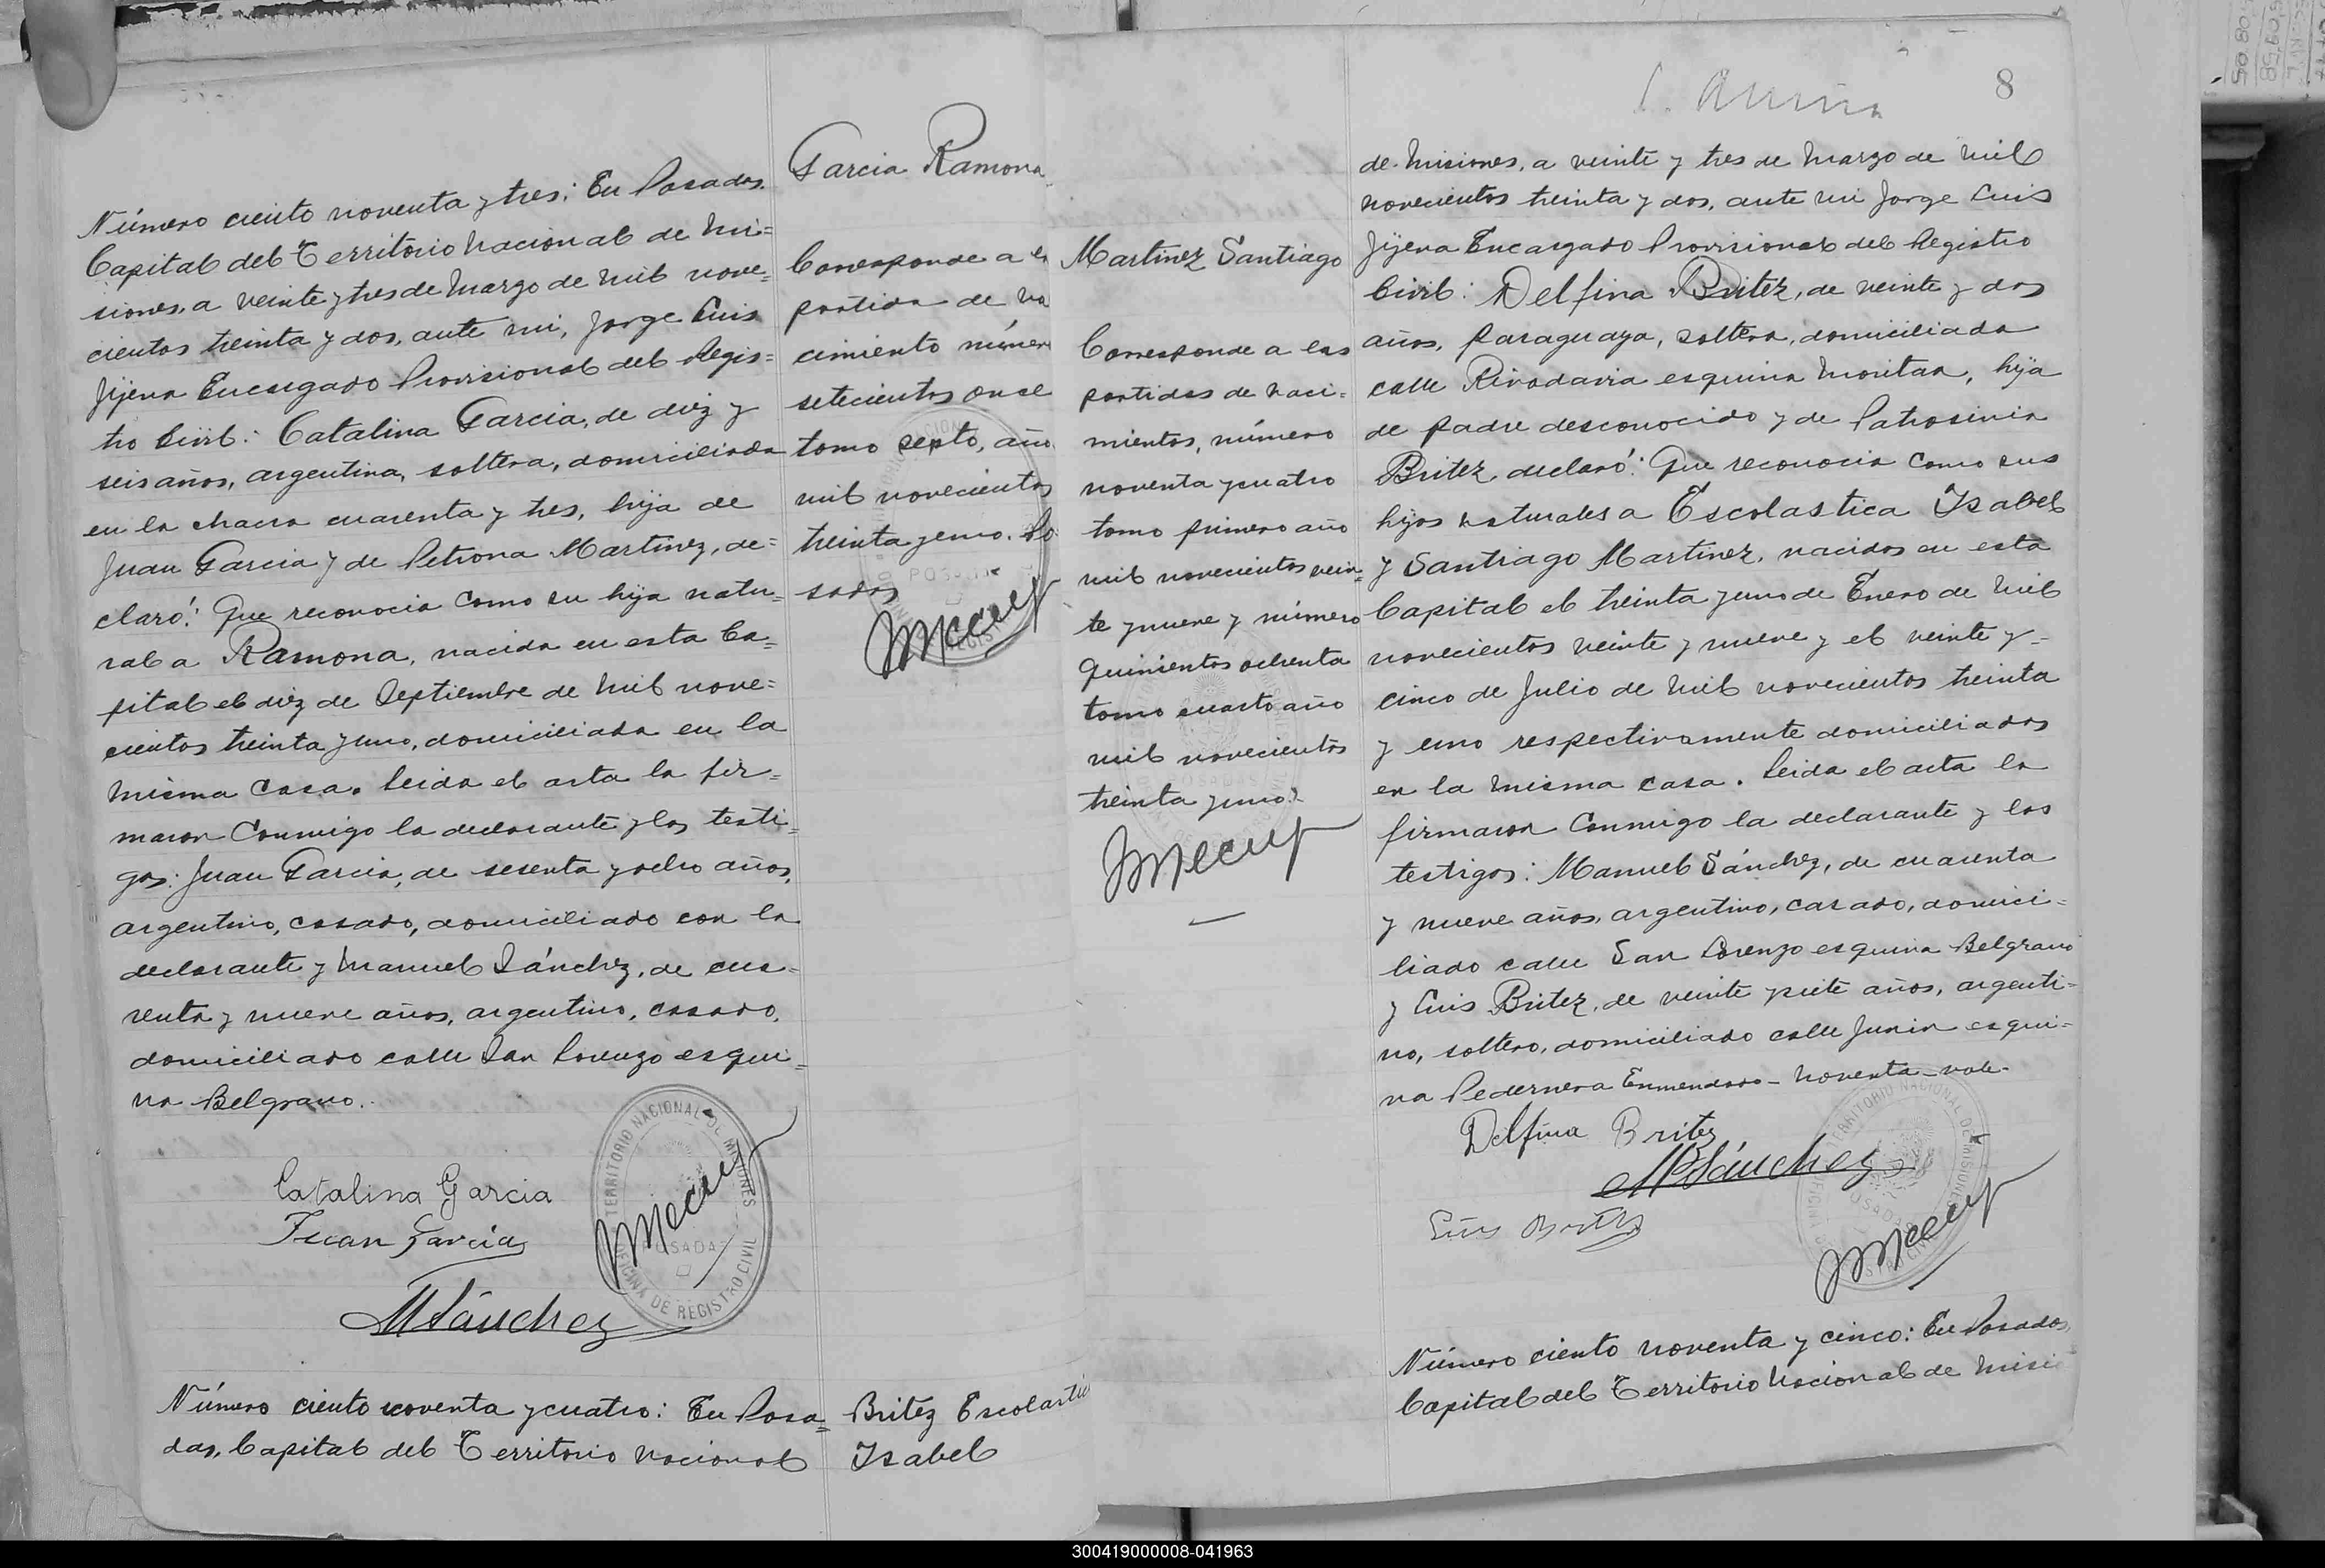 Número ciento noventa y tres: En Posadas.
Capital del Territorio Nacional de Mi=
siones, a veinte y tres de Marzo de mil nove=
cientos treinta y dos, ante mi, Jorge Luis
Jijena Encargado Provisional del Regis=
tro Civil: Catalina Garcia, de diez y
seis años, argentina, soltera, domiciliada
en la chacra cuarenta y tres, hija de
Juan Garcia y de Petrona Martinez, de=
claró: Que reconocia como su hija natu=
ral a Ramona, nacida en esta Ca=
pital el diez de Septiembre de mil nove=
cientos treinta y uno, domiciliada en la
misma casa. Leida el acta la fir=
maron conmigo la declarante y los testi=
gos: Juan Garcia, de sesenta y ocho años,
argentino, casado, domiciliado con la
declarante y Manuel Sánchez, de cua=
renta y nueve años, argentino, casado,
domiciliado calle San Lorenzo esqui=
na Belgrano.
Catalina Garcia
Juan Garcia
MSánchez
TERRITORIO NACIONAL DE MISIONES
POSADAS
OFICINA DE REGISTRO CIVIL
Número ciento noventa y cuatro: En Posa=
das, Capital del Territorio Nacional
Garcia Ramona
Corresponde a
partida de na
cimiento númer
setecientos once
tomo septo, año
mil novecientos
treinta y uno. Po
sadas
Britez Escolastic
Isabel
Martinez Santiago
Corresponde a las
partidas de naci=
mientos, número
noventa y cuatro
tomo primero año
mil novecientos vein=
te y nueve y número
quinientos ochenta
tomo cuarto año
mil novecientos
treinta y uno.
8
de Misiones, a veinte y tres de Marzo de mil
novecientos treinta y dos, ante mi Jorge Luis
Jijena Encargado Provisional del Registro
Civil: Delfina Britez, de veinte y dos
años, paraguaya, soltera, domiciliada
calle Rivadavia esquina Moritan, hija
de padre desconocido y de Patrosinia
Britez, declaró: Que reconocia como sus
hijos naturales a Escolastica Isabel
y Santiago Martinez, nacidos en esta
Capital el treinta y uno de Enero de mil
novecientos veinte y nueve y el veinte y
cinco de Julio de mil novecientos treinta
y uno respectivamente domiciliados
en la misma casa. Leida el acta la
firmaron conmigo la declarante y los
testigos: Manuel Sánchez, de cuarenta
y nueve años, argentino, casado, domici=
liado calle San Lorenzo esquina Belgrano
y Luis Britez, de veinte y siete años, argenti=
no, soltero, domiciliado calle Junin esqui=
na Pedernera Enmendado - noventa - vale.
Delfina Britez
MSánchez
Luis Britez
Número ciento noventa y cinco: En Posadas,
Capital del Territorio Nacional de Misio
300419000008-041963